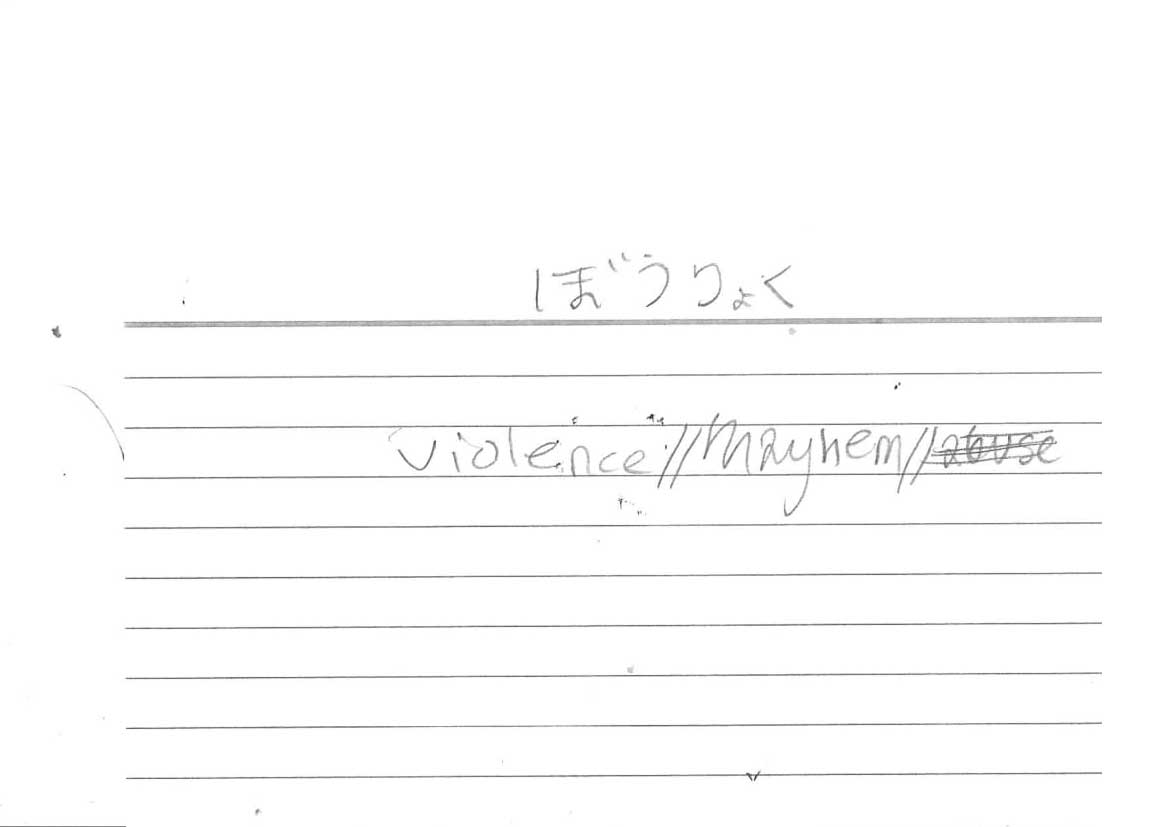 ぼうりょく
violence//mayhem//abuse